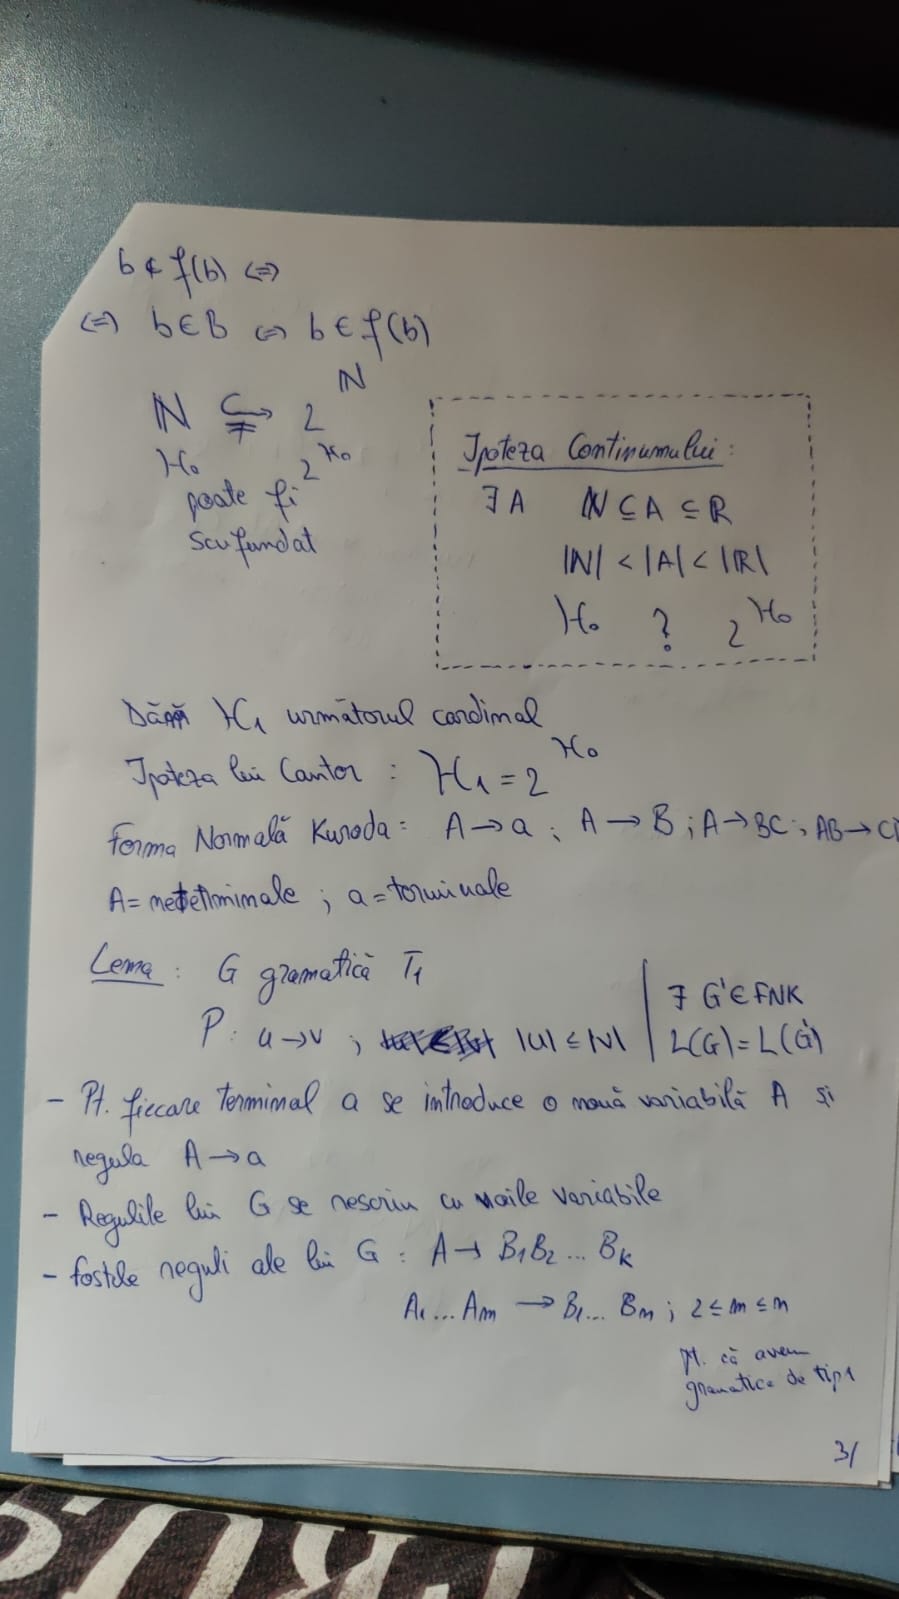 b ∉ f(b) ⇔
⇔ b ∈ B ⇔ b ∈ f(b)
ℕ ⊊→ 2^ℕ
ℵ₀ 2^ℵ₀
poate fi
scufundat
Ipoteza Continumului:
∃ A ℕ ⊆ A ⊆ ℝ
|ℕ| < |A| < |ℝ|
ℵ₀ ? 2^ℵ₀
ℵ₁ următorul cardinal
Ipoteza lui Cantor : ℵ₁ = 2^ℵ₀
Forma Normală Kuroda: A → a ; A → B ; A → BC ; AB → C
A = neterminale ; a = terminale
Lema : G gramatică T₁
P: u → v ; |u| ≤ |v| | ∃ G' ∈ FNK
L(G) = L(G')
- Pt. fiecare terminal a se introduce o nouă variabilă A și
regula A → a
- Regulile lui G se rescriu cu noile variabile
- fostele reguli ale lui G : A → B₁B₂ ... Bₖ
A₁ ... Aₘ → B₁ ... Bₙ ; 2 ≤ m ≤ n
Pt. că avem
gramatica de tip 1
3/